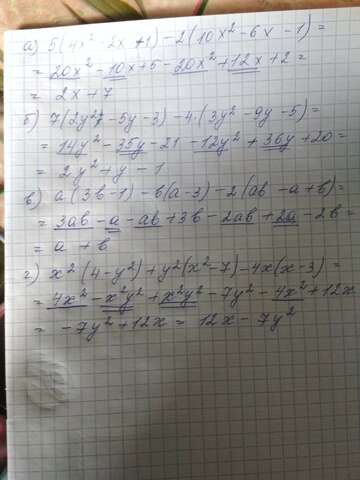 а) 5(4x² - 2x + 1) - 2(10x² - 6x - 1) =
= 20x² - 10x + 5 - 20x² + 12x + 2 =
= 2x + 7
б) 7(2y² - 5y - 3) - 4·(3y² - 9y - 5) =
= 14y² - 35y - 21 - 12y² + 36y + 20 =
= 2y² + y - 1
в) a(3b - 1) - b(a - 3) - 2(ab - a + b) =
= 3ab - a - ab + 3b - 2ab + 2a - 2b =
= a + b
г) x²(4 - y²) + y²(x² - 7) - 4x(x - 3) =
= 4x² - x²y² + x²y² - 7y² - 4x² + 12x
= -7y² + 12x = 12x - 7y²